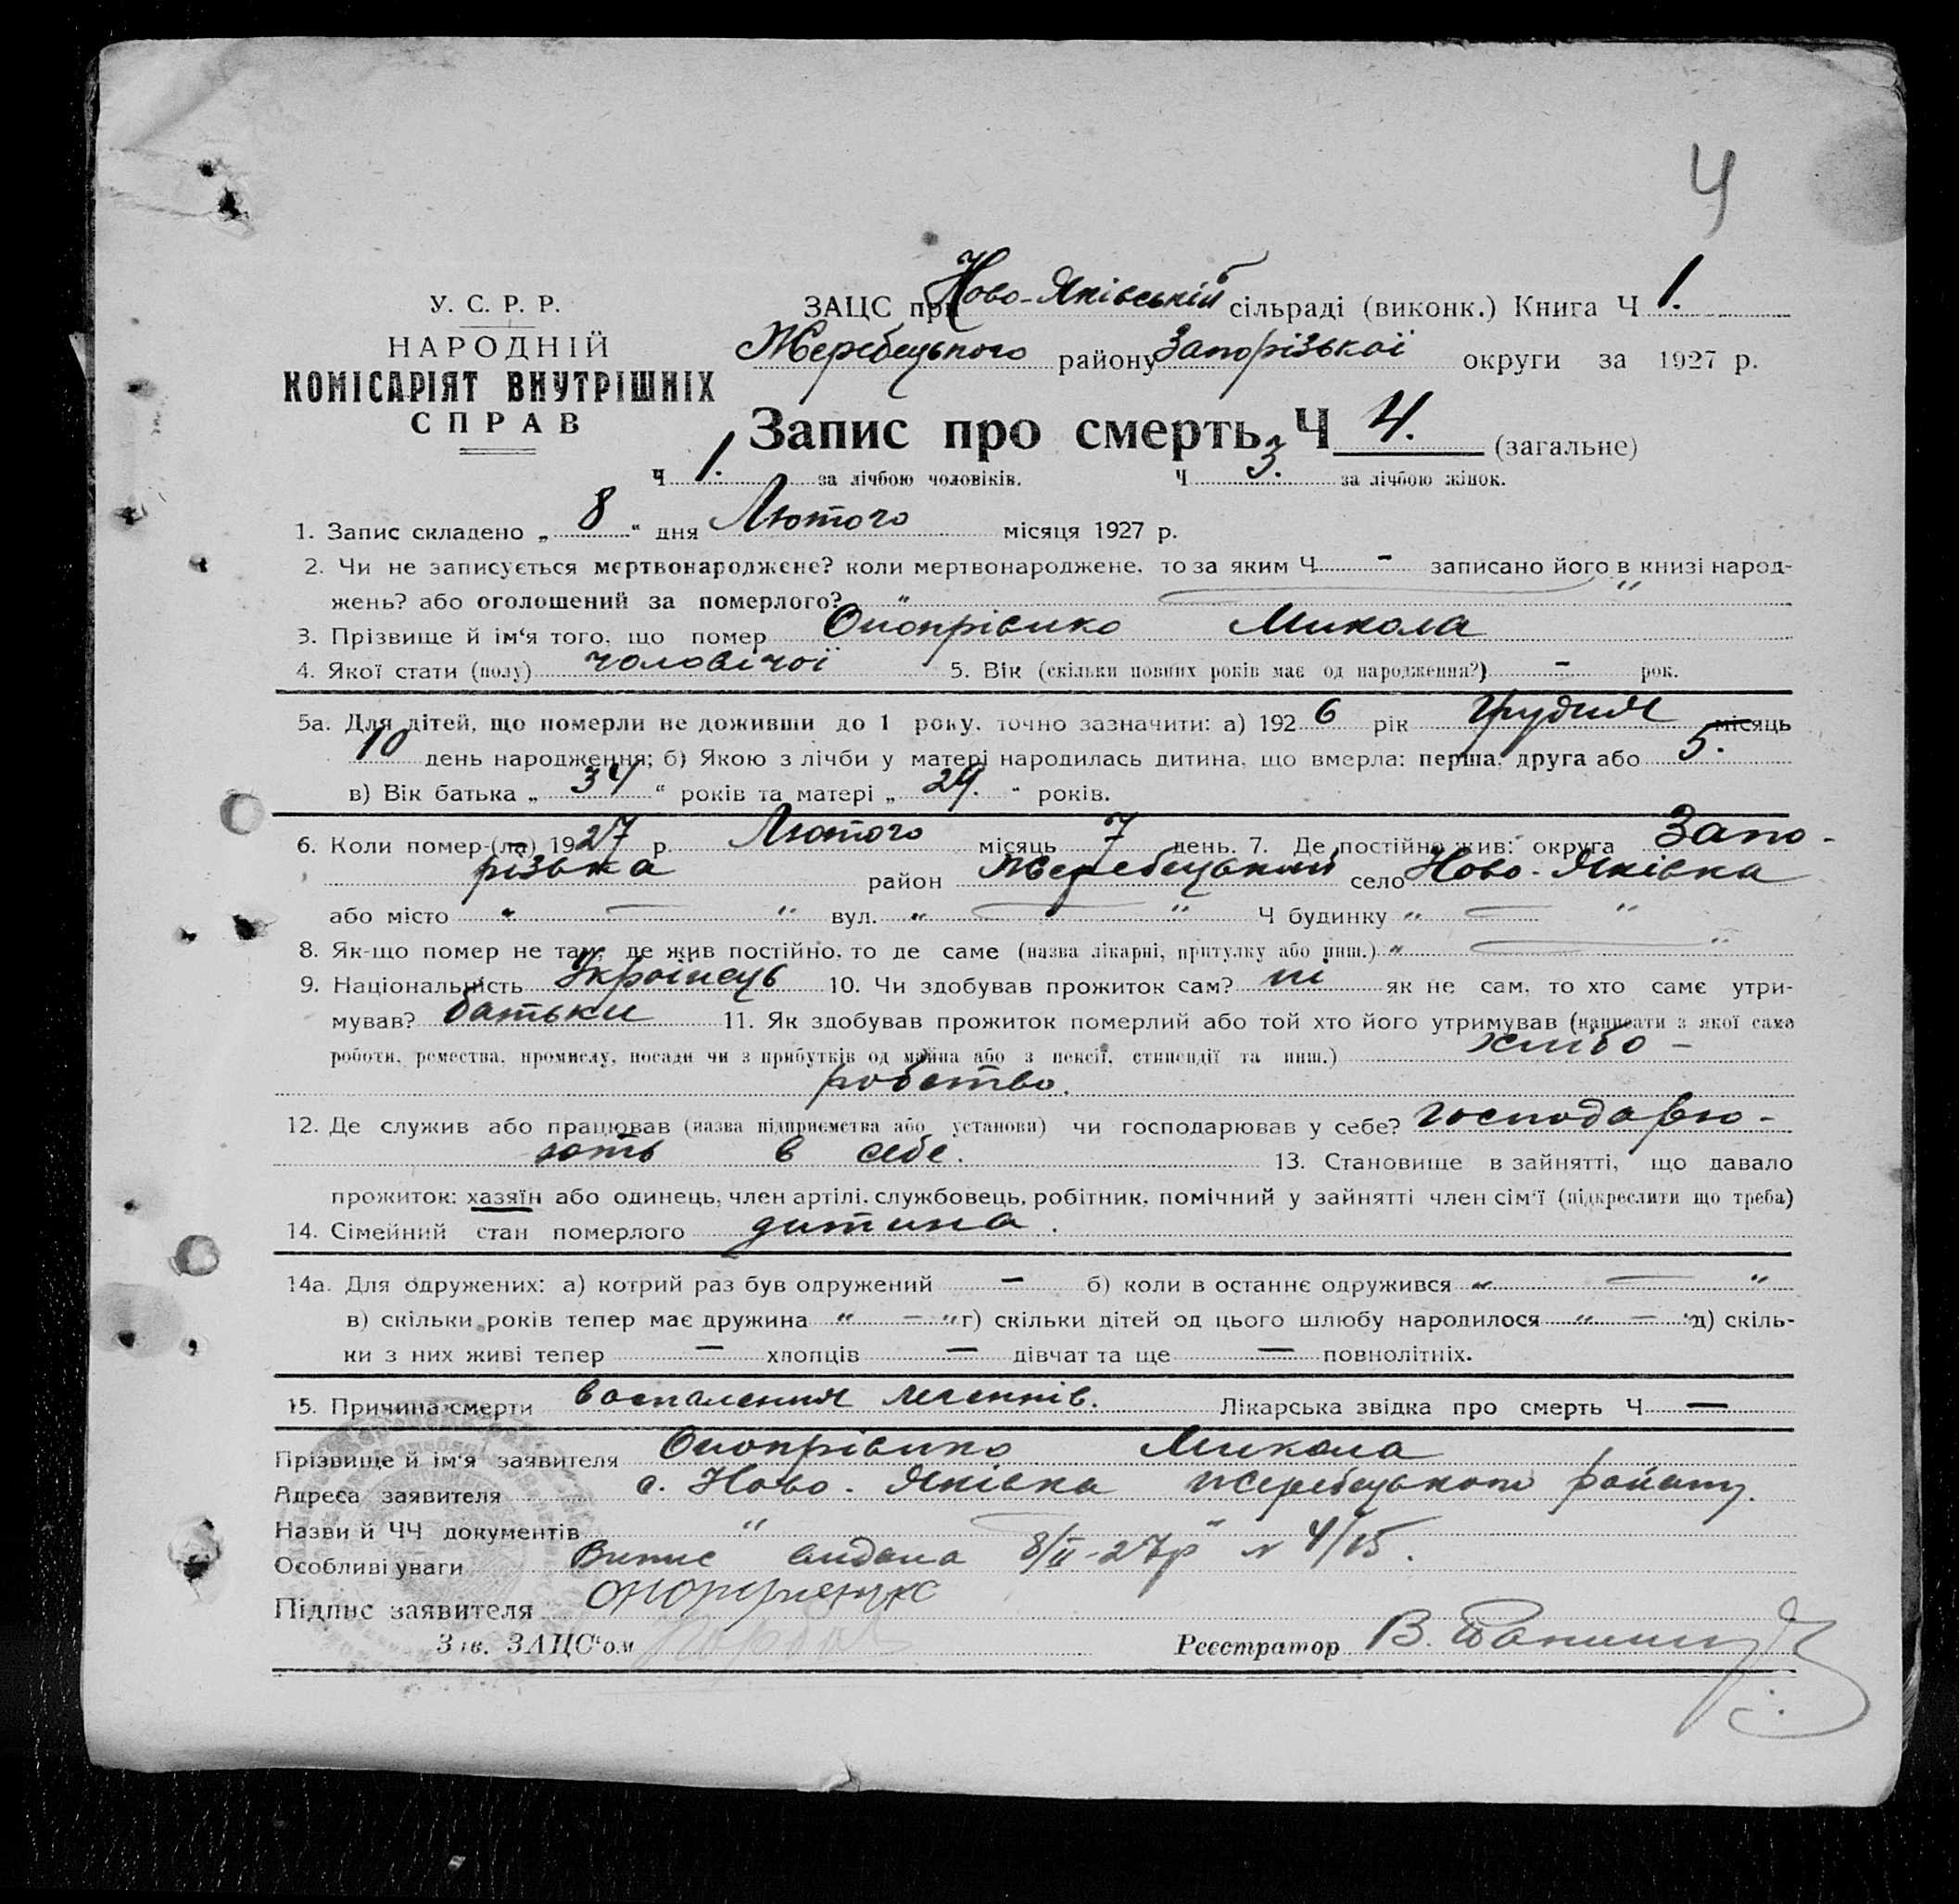 4
У. С. Р. Р.
НАРОДНІЙ
КОМІСАРІЯТ ВНУТРІШНІХ
СПРАВ
ЗАЦС при Ново-Яківській сільраді (виконк.) Книга Ч 1.
Жеребецького району Запорізької округи за 1927 р.
Запис про смерть Ч 4. (загальне)
Ч 1. за лічбою чоловіків. Ч 3. за лічбою жінок.
1. Запис складено „ 8 “ дня Лютого місяця 1927 р.
2. Чи не записується мертвонароджене? коли мертвонароджене, то за яким Ч - записано його в книзі народ-
жень? або оголошений за померлого? „ — “
3. Прізвище й ім‘я того, що помер Онопрієнко Микола
4. Якої стати (полу) чоловічої 5. Вік (скільки повних років має од народження?) - рок.
5а. Для дітей, що померли не доживши до 1 року, точно зазначити: а) 1926 рік Грудня місяць
10 день народження; б) Якою з лічби у матері народилась дитина, що вмерла: перша, друга або 5.
в) Вік батька „ 34 “ років та матері „ 29. “ років.
6. Коли помер-(ла) 1927 р. Лютого місяць 7 день. 7. Де постійно жив: округа Запо-
різька район Жеребецький село Ново-Яківка
або місто „ — “ вул. „ — “ Ч будинку „ — “
8. Як-що помер не там, де жив постійно, то де саме (назва лікарні, притулку або инш.) „ — “
9. Національність Українець 10. Чи здобував прожиток сам? ні як не сам, то хто саме утри-
мував? батьки 11. Як здобував прожиток померлий або той хто його утримував (написати з якої само
роботи, ремества, промислу, посади чи з прибутків од майна або з пенсії, стипендії та инш.) хлібо-
робство.
12. Де служив або працював (назва підприємства або установи) чи господарював у себе? господарю-
ють в себе. 13. Становище в зайнятті, що давало
прожиток: хазяїн або одинець, член артілі, службовець, робітник, помічний у зайнятті член сім‘ї (підкреслити що треба)
14. Сімейний стан померлого дитина.
14а. Для одружених: а) котрий раз був одружений - б) коли в останнє одружився „ — “
в) скільки років тепер має дружина „ — “ г) скільки дітей од цього шлюбу народилося „ — “ д) скіль-
ки з них живі тепер — хлопців — дівчат та ще — повнолітніх.
15. Причина смерти воспалення легенів. Лікарська звідка про смерть Ч —
Прізвище й ім‘я заявителя Онопрієнко Микола
Адреса заявителя с. Ново-Яківка Жеребецького району.
Назви й ЧЧ документів „ — “
Особливі уваги Випис видана 8/II-27р № 4/15.
Підпис заявителя
Зав. ЗАЦС‘ом
Реєстратор В.